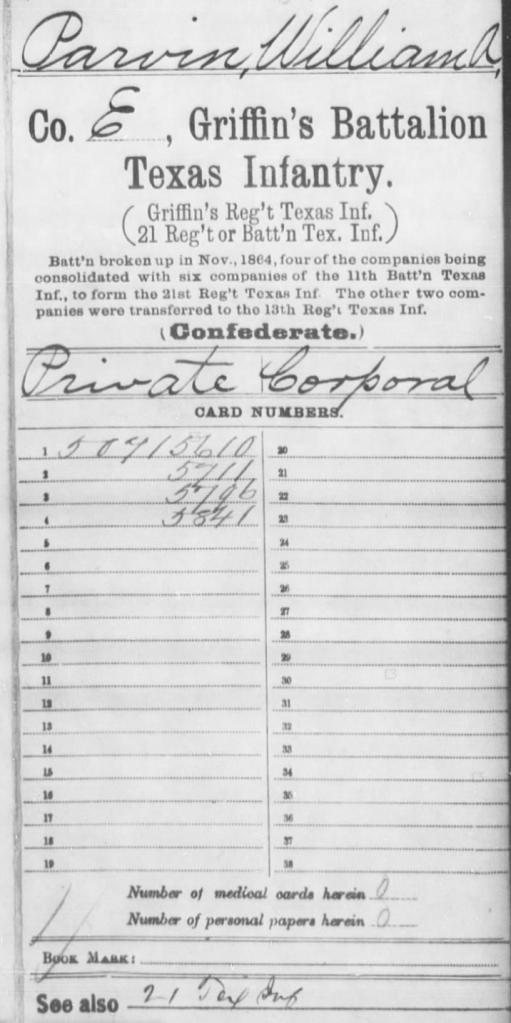 Parvin, William A,
Co. E, Griffin's Battalion
Texas Infantry.
(Griffin's Reg't Texas Inf.
21 Reg't or Batt'n Tex. Inf.)
Batt'n broken up in Nov., 1864, four of the companies being
consolidated with six companies of the 11th Batt'n Texas
Inf., to form the 21st Reg't Texas Inf. The other two com-
panies were transferred to the 13th Reg't Texas Inf.
(Confederate.)
Private Corporal
CARD NUMBERS.
1 50715610 20
2 5711 21
3 5796 22
4 5841 23
5 24
6 25
7 26
8 27
9 28
10 29
11 30
12 31
13 32
14 33
15 34
16 35
17 36
18 37
19 38
Number of medical cards herein 0
Number of personal papers herein 0
BOOK MARK:
See also 21 Tex Inf